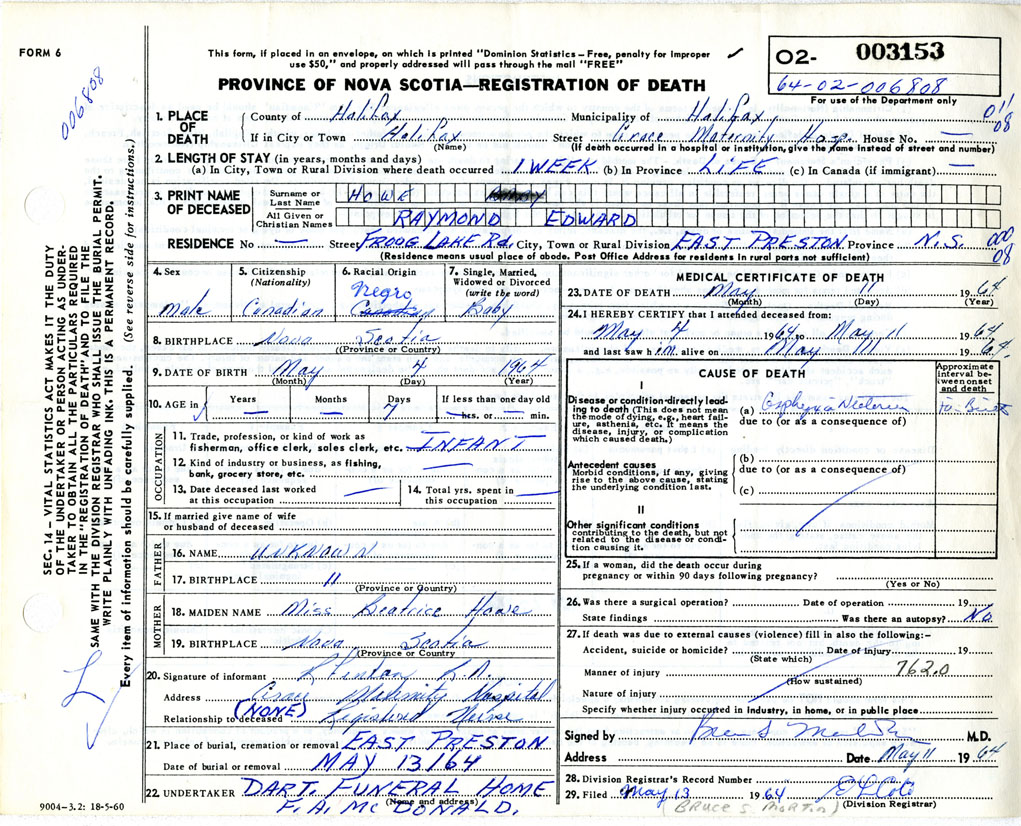 FORM 6
006808
This form, if placed in an envelope, on which is printed "Dominion Statistics – Free, penalty for improper
use $50," and properly addressed will pass through the mail "FREE"
02- 003153
64-02-006808
For use of the Department only
PROVINCE OF NOVA SCOTIA—REGISTRATION OF DEATH
1. PLACE OF DEATH
County of Halifax Municipality of Halifax 011 08
If in City or Town Halifax (Name) Street Grace Maternity Hosp. House No. —
(If death occurred in a hospital or institution, give the name instead of street and number)
2. LENGTH OF STAY (in years, months and days)
(a) In City, Town or Rural Division where death occurred 1 WEEK (b) In Province LIFE (c) In Canada (if immigrant) —
3. PRINT NAME OF DECEASED
Surname or Last Name HOWE
All Given or Christian Names RAYMOND EDWARD
RESIDENCE No — Street FROOG LAKE Rd. City, Town or Rural Division EAST PRESTON Province N.S. 000 08
(Residence means usual place of abode. Post Office Address for residents in rural parts not sufficient)
4. Sex Male
5. Citizenship (Nationality) Canadian
6. Racial Origin Negro
7. Single, Married, Widowed or Divorced (write the word) Baby
8. BIRTHPLACE Nova Scotia
(Province or Country)
9. DATE OF BIRTH May 4 1964
(Month) (Day) (Year)
10. AGE in Years — Months — Days 7 If less than one day old — hrs. or — min.
OCCUPATION
11. Trade, profession, or kind of work as fisherman, office clerk, sales clerk, etc. INFANT
12. Kind of industry or business, as fishing, bank, grocery store, etc. —
13. Date deceased last worked at this occupation —
14. Total yrs. spent in this occupation —
15. If married give name of wife or husband of deceased
FATHER
16. NAME UNKNOWN
17. BIRTHPLACE "
(Province or Country)
MOTHER
18. MAIDEN NAME Miss Beatrice Howe
19. BIRTHPLACE Nova Scotia
(Province or Country
20. Signature of informant R.N.
Address Grace Maternity Hospital
(NONE)
Relationship to deceased Registered Nurse
21. Place of burial, cremation or removal EAST PRESTON
Date of burial or removal MAY 13/64
22. UNDERTAKER DART. FUNERAL HOME
(Name and address)
F. A. McDONALD.
MEDICAL CERTIFICATE OF DEATH
23. DATE OF DEATH May 11 1964
(Month) (Day) (Year)
24. I HEREBY CERTIFY that I attended deceased from:
May 4 1964 to May 11 1964
and last saw him alive on May 11 1964
CAUSE OF DEATH
Approximate interval between onset and death
I
Disease or condition directly leading to death (This does not mean the mode of dying, e.g., heart failure, asthenia, etc. It means the disease, injury, or complication which caused death.)
(a)
due to (or as a consequence of)
Antecedent causes
Morbid conditions, if any, giving rise to the above cause, stating the underlying condition last.
(b)
due to (or as a consequence of)
(c)
II
Other significant conditions contributing to the death, but not related to the disease or condition causing it.
25. If a woman, did the death occur during
pregnancy or within 90 days following pregnancy?
(Yes or No)
26. Was there a surgical operation? Date of operation 19
State findings Was there an autopsy? No
27. If death was due to external causes (violence) fill in also the following:–
Accident, suicide or homicide? Date of injury 19
(State which)
Manner of injury 762.0
(How sustained)
Nature of injury
Specify whether injury occurred in industry, in home, or in public place
Signed by M.D.
Address Date May 11 1964
28. Division Registrar's Record Number
29. Filed May 13 1964
(BRUCE S MORTON) (Division Registrar)
SEC. 14 – VITAL STATISTICS ACT MAKES IT THE DUTY
OF THE UNDERTAKER OR PERSON ACTING AS UNDER-
TAKER TO OBTAIN ALL THE PARTICULARS REQUIRED
IN THE "REGISTRATION OF DEATH" AND TO FILE THE
SAME WITH THE DIVISION REGISTRAR WHO SHALL ISSUE THE BURIAL PERMIT.
WRITE PLAINLY WITH UNFADING INK. THIS IS A PERMANENT RECORD.
Every item of information should be carefully supplied. (See reverse side for instructions.)
9004-3.2: 18-5-60